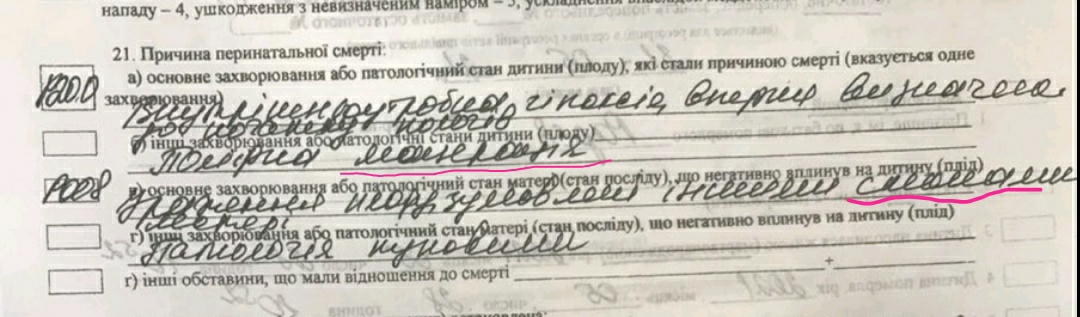 нападу – 4, ушкодження з невизначеним наміром – 5,
21. Причина перинатальної смерті:
а) основне захворювання або патологічний стан дитини (плоду), які стали причиною смерті (вказується одне
P200 захворювання)
Внутрішньоутробна гіпоксія вперше визначена
до початку пологів
б) інші захворювання або патологічні стани дитини (плоду)
Помірна мацерація
P008 в) основне захворювання або патологічний стан матері (стан посліду), що негативно вплинув на дитину (плід)
Ураження плода зумовлені іншими станами
матері
г) інші захворювання або патологічний стан матері (стан посліду), що негативно вплинув на дитину (плід)
Патологія пуповини
ґ) інші обставини, що мали відношення до смерті